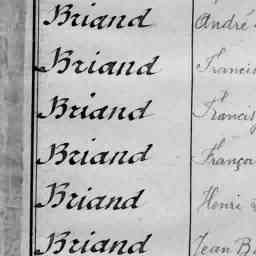 Briand André
Briand Francis
Briand Francis
Briand Franço
Briand Henri
Briand Jean B